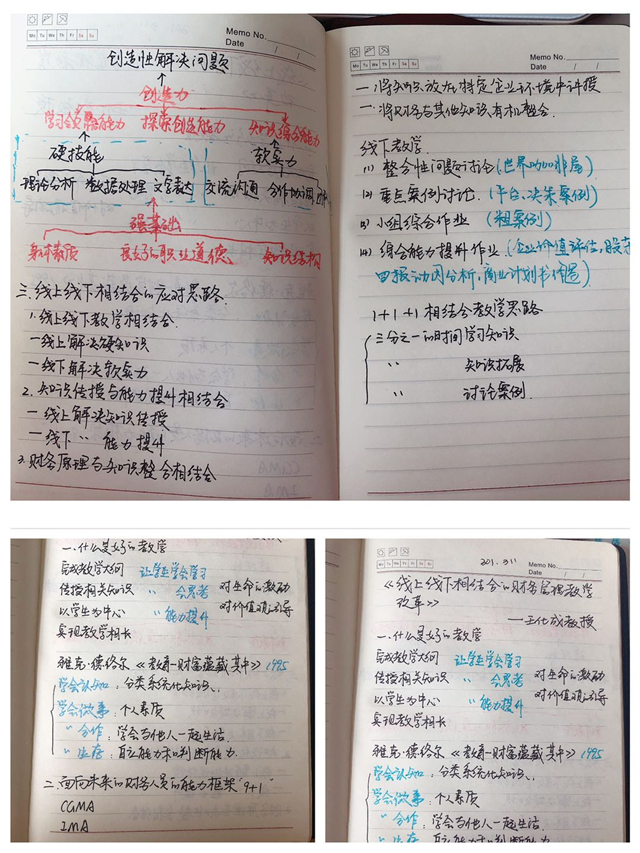 Memo No.
Mo Tu We Th Fr Sa Su
Date / /
创造性解决问题
创造力
学习会计智能能力 探索创造能力 知识综合能力
硬技能 软实力
理论分析 数据处理 文字表达 交流沟通 合作协调
强基础
身体素质 良好的职业道德 知识结构
三.线上线下相结合的应对思路
1.线上线下教学相结合.
一线上解决硬知识
一线下解决软实力
2.知识传授与能力提升相结合
一线上解决知识传授
一线下 〃 能力提升
3.财务原理与知识整合相结合
Memo No.
Mo Tu We Th Fr Sa Su
Date / /
一将知识放在特定企业环境中讲授
一将知识与其他知识有机整合.
线下教学.
(1) 整合性问题讨论(世界咖啡屋)
(2) 重点案例讨论.(平台、决策案例)
(3) 小组综合作业 (粗案例)
(4) 综合能力提升作业(企业价值评估,股东
回报动因分析,商业计划书
1+1+1相结合教学思路
三分之一的时间学习知识
〃 知识拓展
〃 讨论案例.
一.什么是好的教学
完成教学大纲 让学生学会学习
传授相关知识 〃 会思考 对生命的激励
以学生为中心 〃 能力提升 对价值观的引导
实现教学相长
雅克·德洛尔《教育—财富蕴藏其中》1995
学会认知:分类系统化知识.
学会做事:个人素质
〃 合作:学会与他人一起生活
〃 生存:自立能力和判断能力.
二.面向未来的财务人员的能力框架"9+1"
CGMA
IMA
Memo No.
Mo Tu We Th Fr Sa Su
Date / /
201.311
《线上线下相结合的财务管理教学
改革》
—王化成教授
一.什么是好的教学
完成教学大纲 让学生学会学习
传授相关知识 〃 会思考 对生命的激励
以学生为中心 〃 能力提升 对价值观的引导
实现教学相长
雅克·德洛尔《教育—财富蕴藏其中》1995
学会认知:分类系统化知识.
学会做事:个人素质
〃 合作:学会与他人一起生活.
〃 生存:自立能力和判断能力